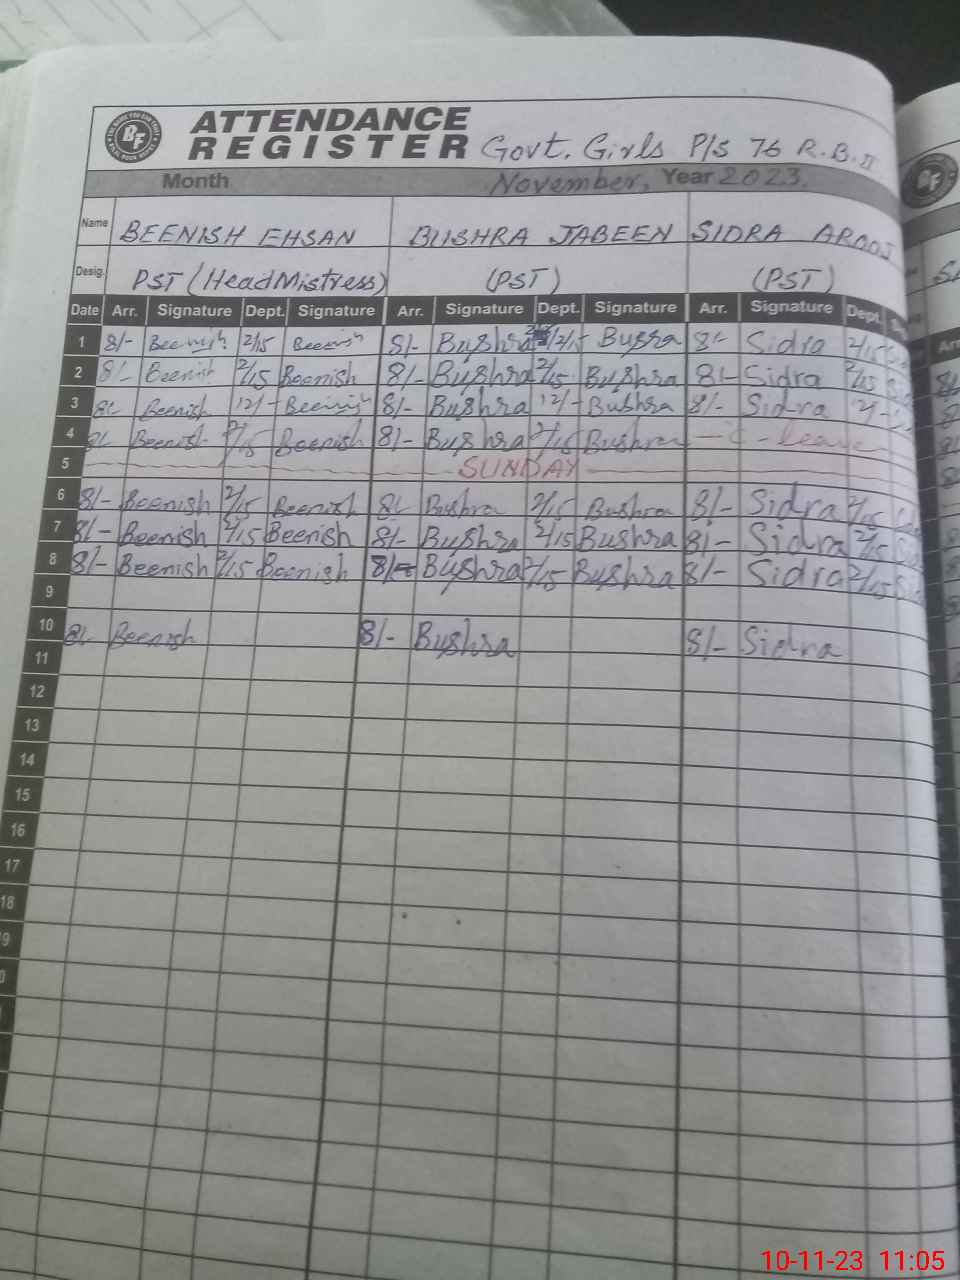 ATTENDANCE
REGISTER Govt. Girls P/S 76 R.B. II
Month November, Year 2023.
Name BEENISH EHSAN BUSHRA JABEEN SIDRA AROOJ
Desig. PST (HeadMistress) (PST) (PST)
Date Arr. Signature Dept. Signature Arr. Signature Dept. Signature Arr. Signature Dept.
1 8/- Beenish 2/15 Beenish 8/- Bushra 2/15 Bushra 8/- Sidra 2/15
2 8/- Beenish 2/15 Beenish 8/- Bushra 2/15 Bushra 8/- Sidra 2/15
3 8/- Beenish 12/- Beenish 8/- Bushra 12/- Bushra 8/- Sidra 12/-
4 8/- Beenish 2/15 Beenish 8/- Bushra 2/15 Bushra - C - Leave
5 SUNDAY
6 8/- Beenish 2/15 Beenish 8/- Bushra 2/15 Bushra 8/- Sidra 2/15
7 8/- Beenish 2/15 Beenish 8/- Bushra 2/15 Bushra 8/- Sidra 2/15
8 8/- Beenish 2/15 Beenish 8/- Bushra 2/15 Bushra 8/- Sidra 2/15
9
10 8/- Beenish 8/- Bushra 8/- Sidra
11
12
13
14
15
16
17
18
10-11-23 11:05